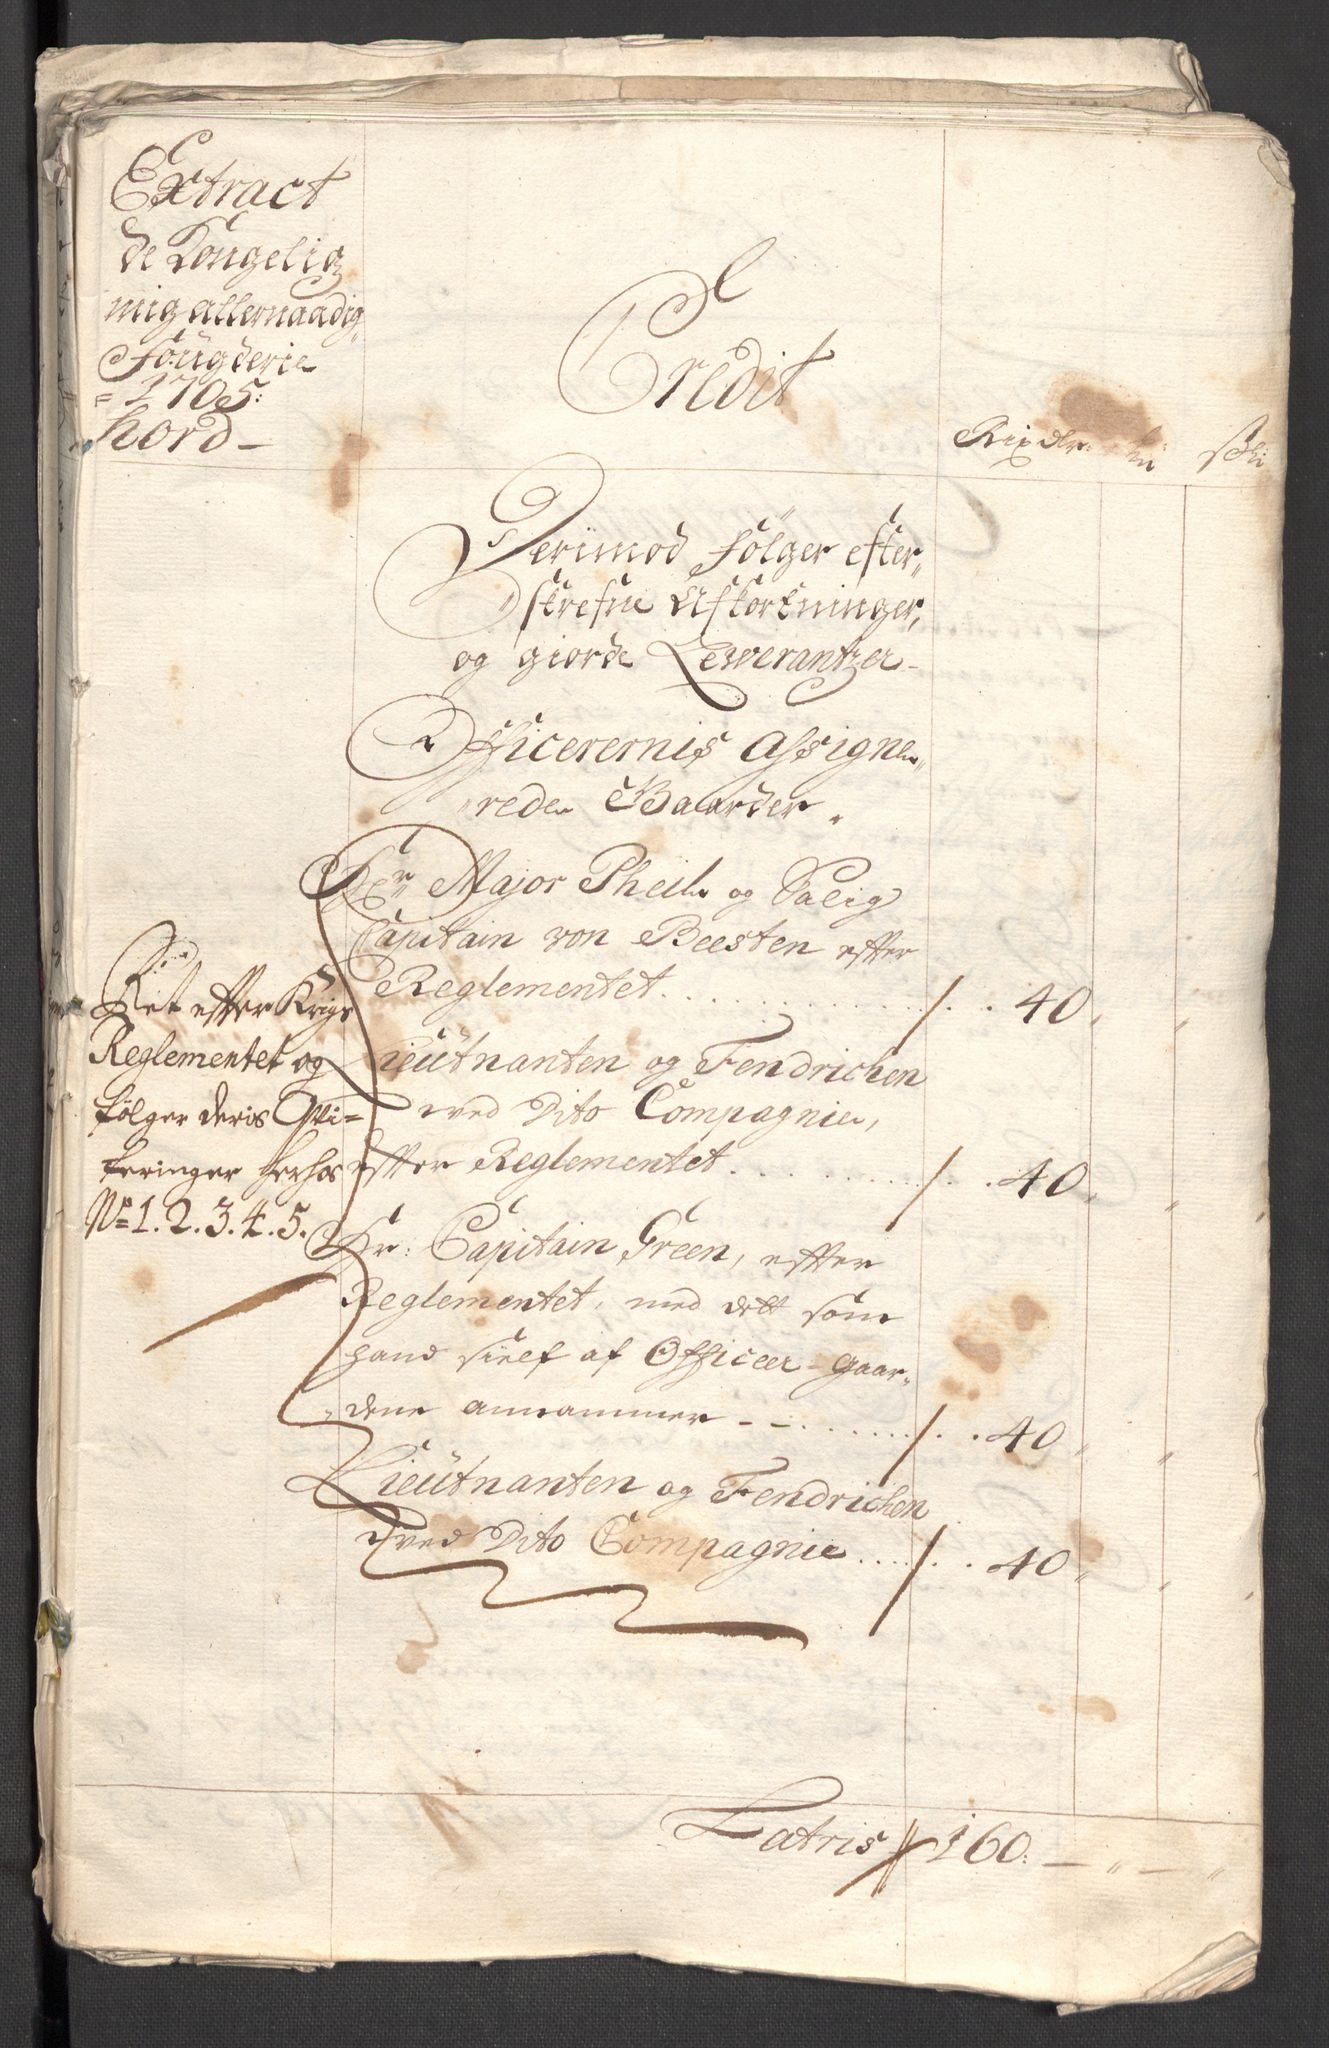 Extract
de Kongelig
mig allernaadig
Fougderie
= 1705:
hord –
Credit
Rixdlr: sk
Derimod Følger efter„
„skrefne Afkortninger,
og giorde Lewerantzer –
Officerernis Assigne„
„rede Baarder.
Hr Major Pheil og Salig
Capitain von Beesten effter
Reglementet . . . 40 „ „
Lieutnanten og Fendrichen
wed Dito Compagnie,
effter Reglementet . . . 40 „ „
Hr: Capitain Green, effter
Reglementet, med dett som
hand sielf af Officeer-Gaar„
„dene annammer - - . . . 40 „ „
Lieutnanten og Fendrichen
wed Dito Compagnie . . . 40 „ „
Ret effter Krigs
Reglementet og
følger deris Qvi=
teringer herhos
No 1. 2. 3. 4. 5.
Latris 160: – „ – „